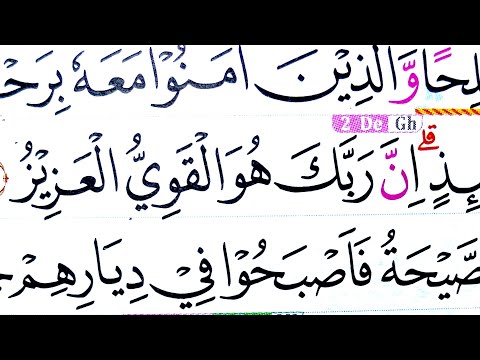 لِحًا وَّالَّذِيْنَ اٰمَنُوْا مَعَهٗ بِرَحْ
2 De Gh
قلے
ىِٕذٍ اِنَّ رَبَّكَ هُوَالْقَوِيُّ الْعَزِيْزُ
صَّيْحَةُ فَاَصْبَحُوْا فِيْ دِيَارِهِمْ